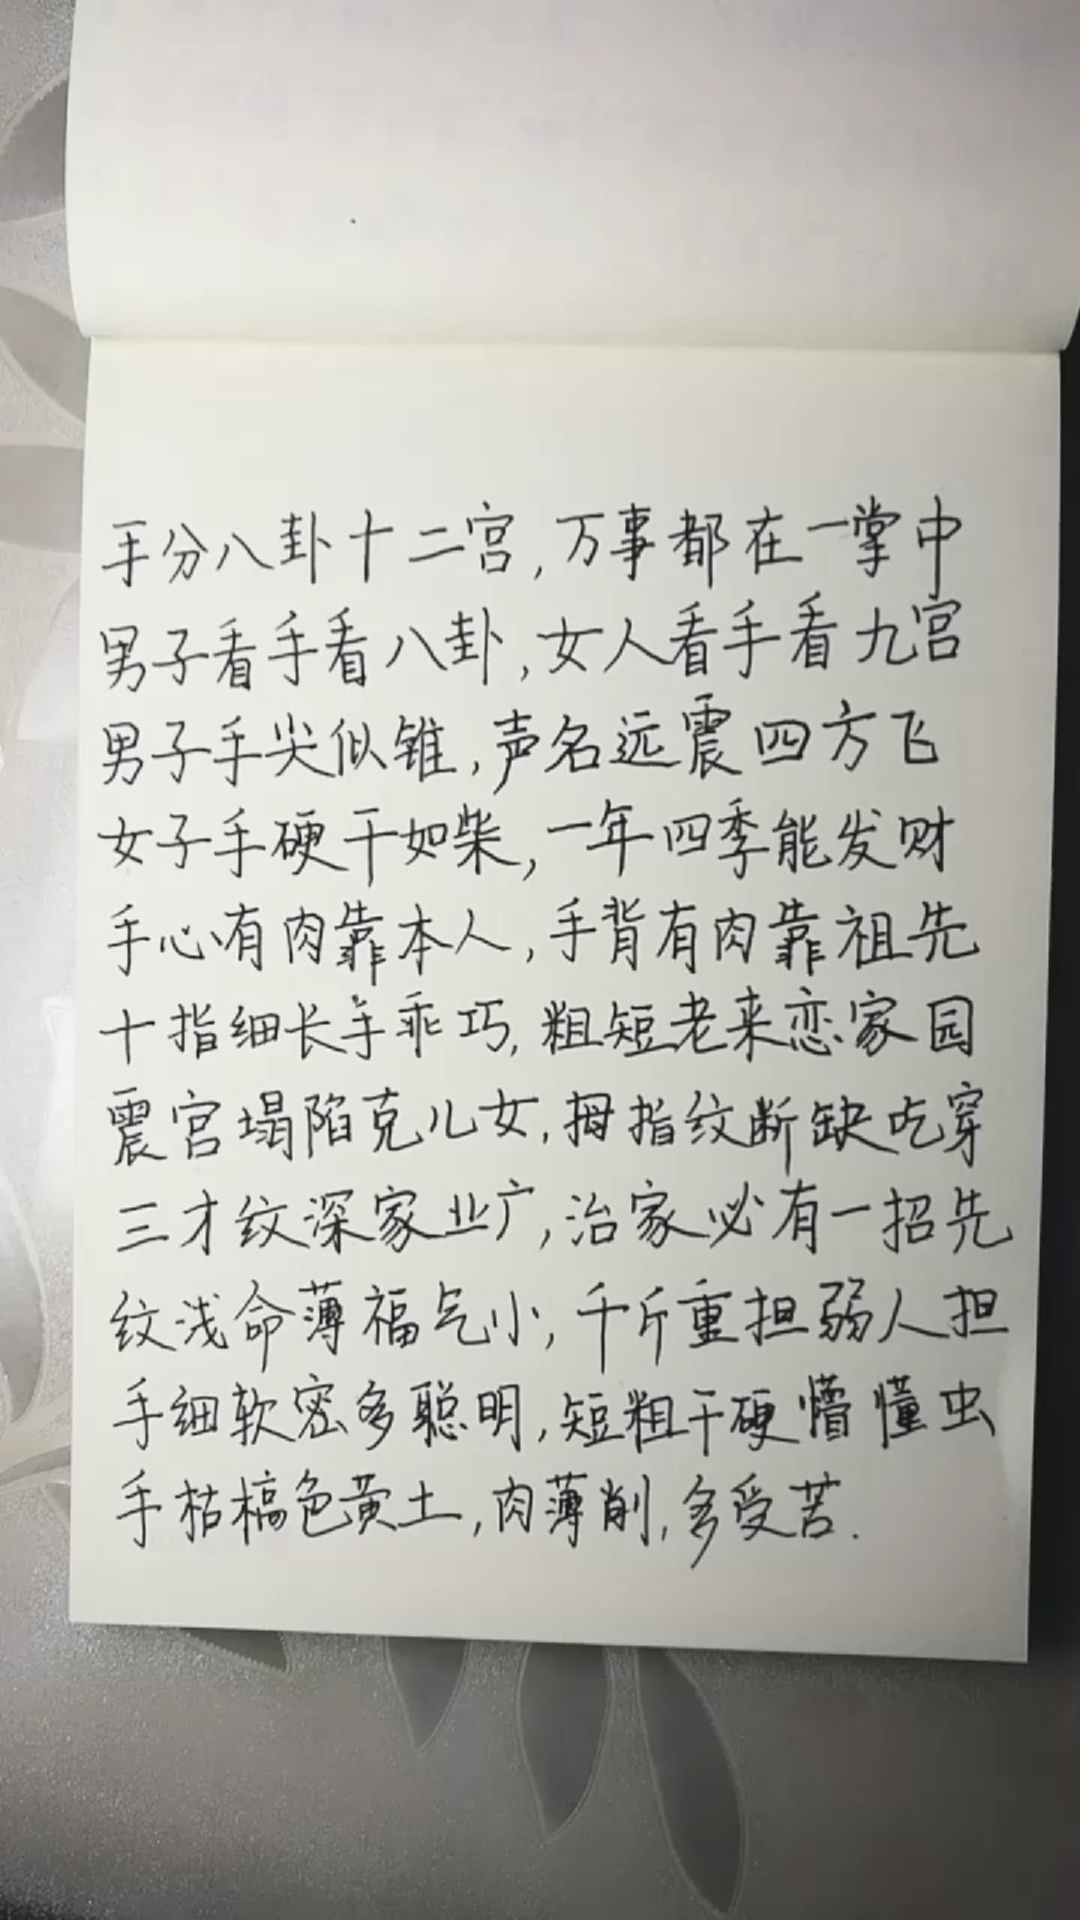 手分八卦十二宫,万事都在一掌中
男子看手看八卦,女人看手看九宫
男子手尖似锥,声名远震四方飞
女子手硬干如柴,一年四季能发财
手心有肉靠本人,手背有肉靠祖先
十指细长手乖巧,粗短老来恋家园
震宫塌陷克儿女,拇指纹断缺吃穿
三才纹深家业广,治家必有一招先
纹浅命薄福气小,千斤重担弱人担
手细软密多聪明,短粗干硬懵懂虫
手枯槁色黄土,肉薄削,多受苦.